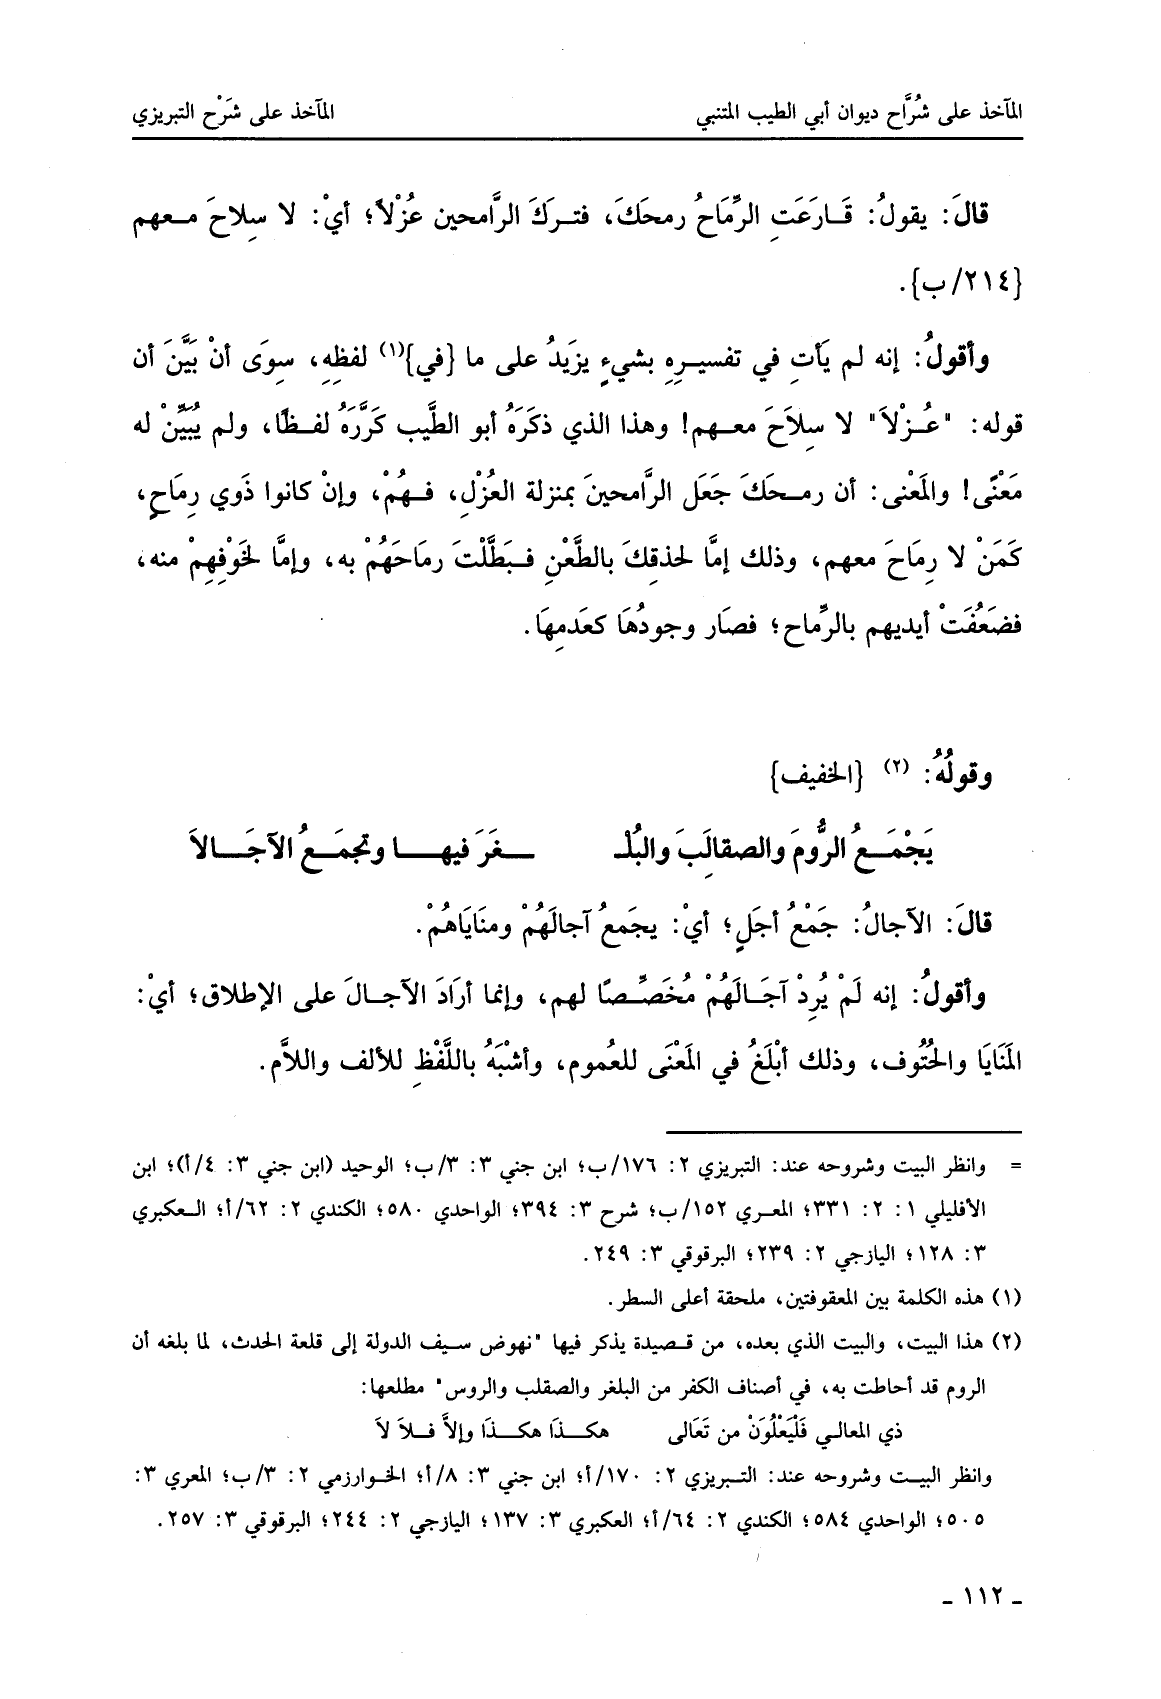 المآخذ على شُرَّاح ديوان أبي الطيب المتنبي المآخذ على شَرْح التبريزي
قالَ: يقولُ: قَارَعَتِ الرِّمَاحُ رمحَكَ، فتركَ الرَّامحين عُزْلاً؛ أيْ: لا سِلاحَ معهم
{٢١٤/ب}.
وأقولُ: إنه لم يَأتِ في تفسيرِهِ بشيءٍ يزَيدُ على ما {في}(١) لفظِهِ، سِوَى أنْ بَيَّنَ أن
قوله: "عُزْلاَ" لا سِلاَحَ معهم! وهذا الذي ذكَرَهُ أبو الطَّيب كَرَّرَهُ لفظًا، ولم يُبَيِّنْ له
مَعْنًى! والمَعْنى: أن رمحَكَ جَعَل الرَّامحينَ بمنزلة العُزْلِ، فهُمْ، وإنْ كانوا ذَوي رِمَاحٍ،
كَمَنْ لا رِمَاحَ معهم، وذلك إمَّا لحذقِكَ بالطَّعْنِ فبَطَّلْتَ رمَاحَهُمْ به، وإمَّا لخَوْفِهِمْ منه،
فضَعُفَتْ أيديهم بالرِّماح؛ فصَار وجودُهَا كعَدمِهَا.
وقولُهُ: (٢) {الخفيف}
يَجْمَعُ الرُّومَ والصقالِبَ والبُلْـ ـغَرَ فيها وتجمَعُ الآجَالاَ
قالَ: الآجالُ: جَمْعُ أجَلٍ؛ أيْ: يجمَعُ آجالَهُمْ ومنَايَاهُمْ.
وأقولُ: إنه لَمْ يُرِدْ آجَالَهُمْ مُخَصِّصًا لهم، وإنما أرَادَ الآجالَ على الإطلاق؛ أيْ:
المَنَايَا والحُتُوف، وذلك أبْلَغُ في المَعْنَى للعُموم، وأشْبَهُ باللَّفْظِ للألف واللاَّم.
= وانظر البيت وشروحه عند: التبريزي ٢: ١٧٦/ب؛ ابن جني ٣: ٣/ب؛ الوحيد (ابن جني ٣: ٤/أ)؛ ابن
الأفليلي ١: ٢: ٣٣١؛ المعري ١٥٢/ب؛ شرح ٣: ٣٩٤؛ الواحدي ٥٨٠؛ الكندي ٢: ٦٢/أ؛ العكبري
٣: ١٢٨؛ اليازجي ٢: ٢٣٩؛ البرقوقي ٣: ٢٤٩.
(١) هذه الكلمة بين المعقوفتين، ملحقة أعلى السطر.
(٢) هذا البيت، والبيت الذي بعده، من قصيدة يذكر فيها "نهوض سيف الدولة إلى قلعة الحدث، لما بلغه أن
الروم قد أحاطت به، في أصناف الكفر من البلغر والصقلب والروس" مطلعها:
ذي المعالي فَلْيَعْلُوَنْ من تَعَالى هكذَا هكذَا وإلاَّ فلاَ لاَ
وانظر البيت وشروحه عند: التبريزي ٢: ١٧٠/أ؛ ابن جني ٣: ٨/أ؛ الخوارزمي ٢: ٣/ب؛ المعري ٣:
٥٠٥؛ الواحدي ٥٨٤؛ الكندي ٢: ٦٤/أ؛ العكبري ٣: ١٣٧؛ اليازجي ٢: ٢٤٤؛ البرقوقي ٣: ٢٥٧.
ـ ١١٢ ـ